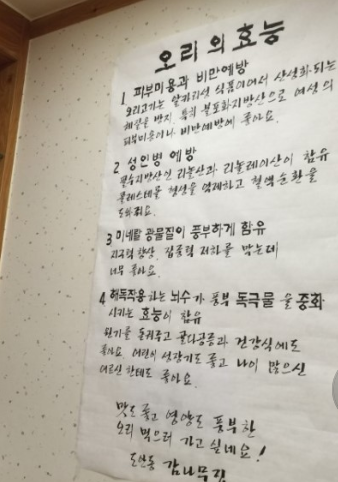 오리의효능
1 피부미용과 비만예방
오리고기는 알카리성 식품이어서 산성화되는
체질을 방지, 특히 불포화지방산으로 여성의
피부미용이나 비만예방에 좋아요.
2 성인병 예방
필수지방산인 리놀산과 리놀레이산이 함유
콜레스테롤 형성을 억제하고 혈액순환을
도와줘요.
3 미네랄 광물질이 풍부하게 함유
지구력 향상, 집중력 저하를 막는데
너무 좋아요.
4 해독작용 하는 뇌수가 풍부 독극물을 중화
시키는 효능이 함유
원기를 돋궈주고 골다공증과 건강식에도
좋아요. 어린이 성장기도 좋고 나이 많으신
어르신 한테도 좋아요.
맛도 좋고 영양도 풍부한
오리 먹으러 가고 싶네요!
도안동 감나무집